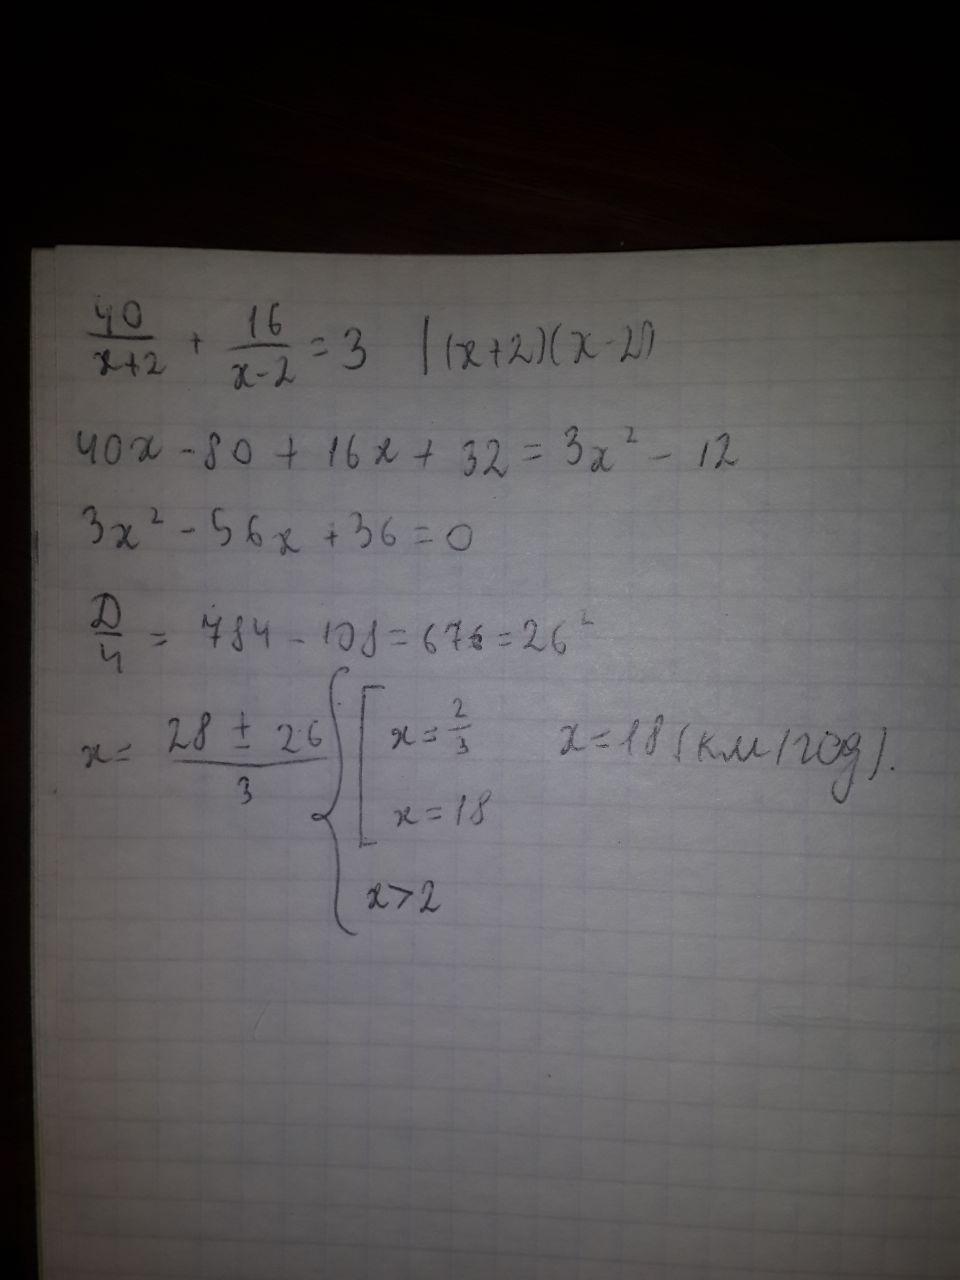 40/(x+2) + 16/(x-2) = 3 | (x+2)(x-2)
40x - 80 + 16x + 32 = 3x² - 12
3x² - 56x + 36 = 0
D/4 = 784 - 108 = 676 = 26²
x = (28 ± 26)/3 { [ x = 2/3 x = 18 (км/год).
x = 18
x > 2